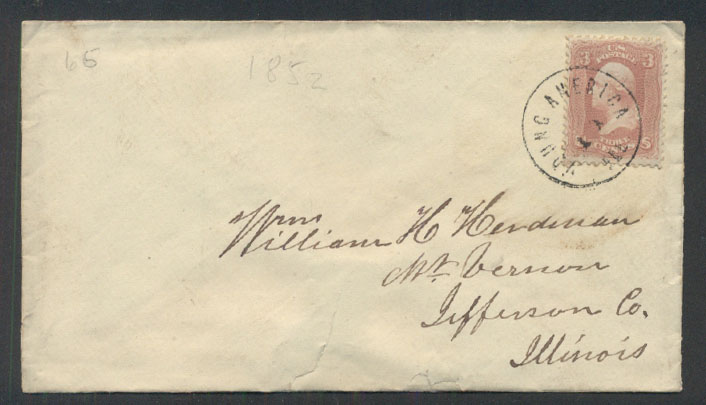 65
1852
3 U.S. 3
POSTAGE
THREE
CENTS
YOUNG AMERICA
Wm
William H Herdman
Mt. Vernon
Jefferson Co.
Illinois